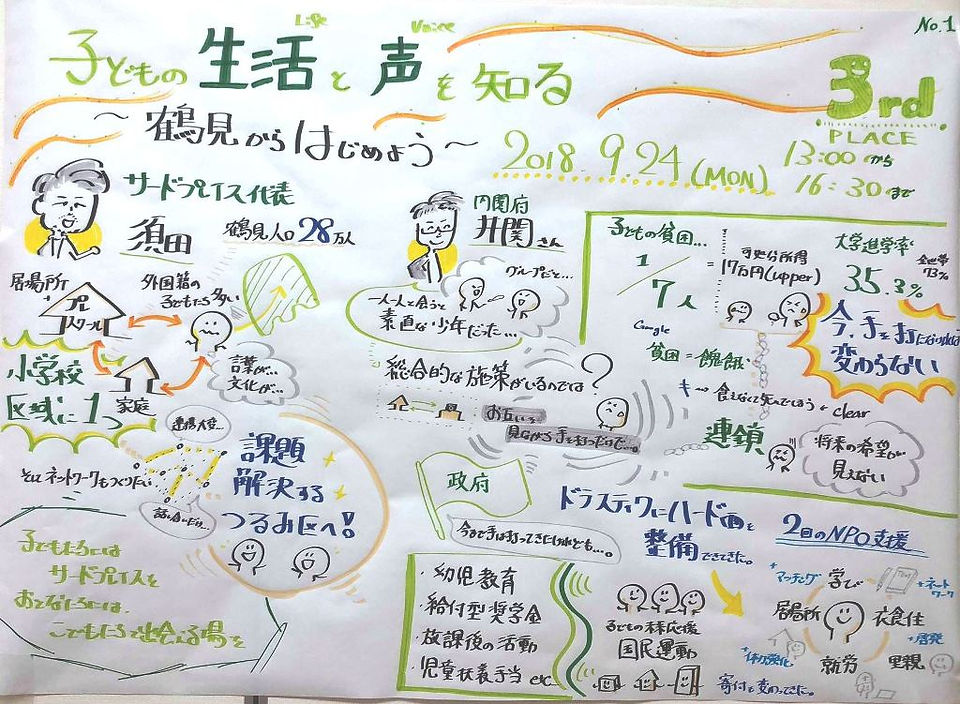 No.1
Life
Voice
子どもの 生活 と 声 を 知る
3rd
PLACE
～鶴見からはじめよう～
2018. 9.24 (MON)
13:00から
16:30まで
サードプレイス代表
須田
鶴見人口28万人
居場所
プレ
スクール
外国籍の
子どもたち多い
言葉が…
文化が…
小学校
区域に1つ
家庭
連携大変…
そしてネットワークもつくりたい
話し合いだけ…
課題
解決する
つるみ区へ!
子どもたちには
サードプレイスを
おとなたちには、
こどもたちで出会える場を
内閣府
井関さん
グループだと…
一人一人と会うと
素直な少年だった…
総合的な施策がいるのでは?
お互い
見ながら手を打つだけで…。
子どもの貧困…
1/7人
=
可処分所得
17万円(upper)
大学進学率
35.3%
全世帯
73%
今、手を打たなければ
変わらない
Google
貧困=飢餓
キ→食えなくて死んでしまう ← clear
連鎖
将来の希望が
見えない
政府
今まで手は打ってきたけれども…。
ドラスティックにハード面を
整備してきた。
・幼児教育
・給付型奨学金
・放課後の活動
・児童扶養手当 etc
子どもの未来応援
国民運動
寄付も変わってきた。
2日のNPO支援
+マッチング
学び
+ネット
ワーク
居場所
衣食住
+啓発
+体制強化
就労
里親